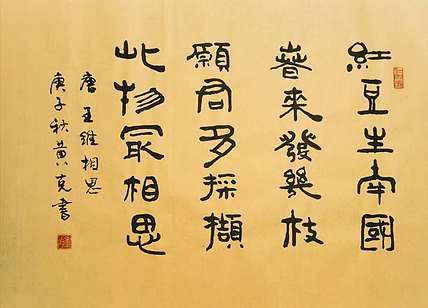 紅豆生南國
春來發幾枝
願君多採擷
此物最相思
唐王維相思
庚子秋黄克書